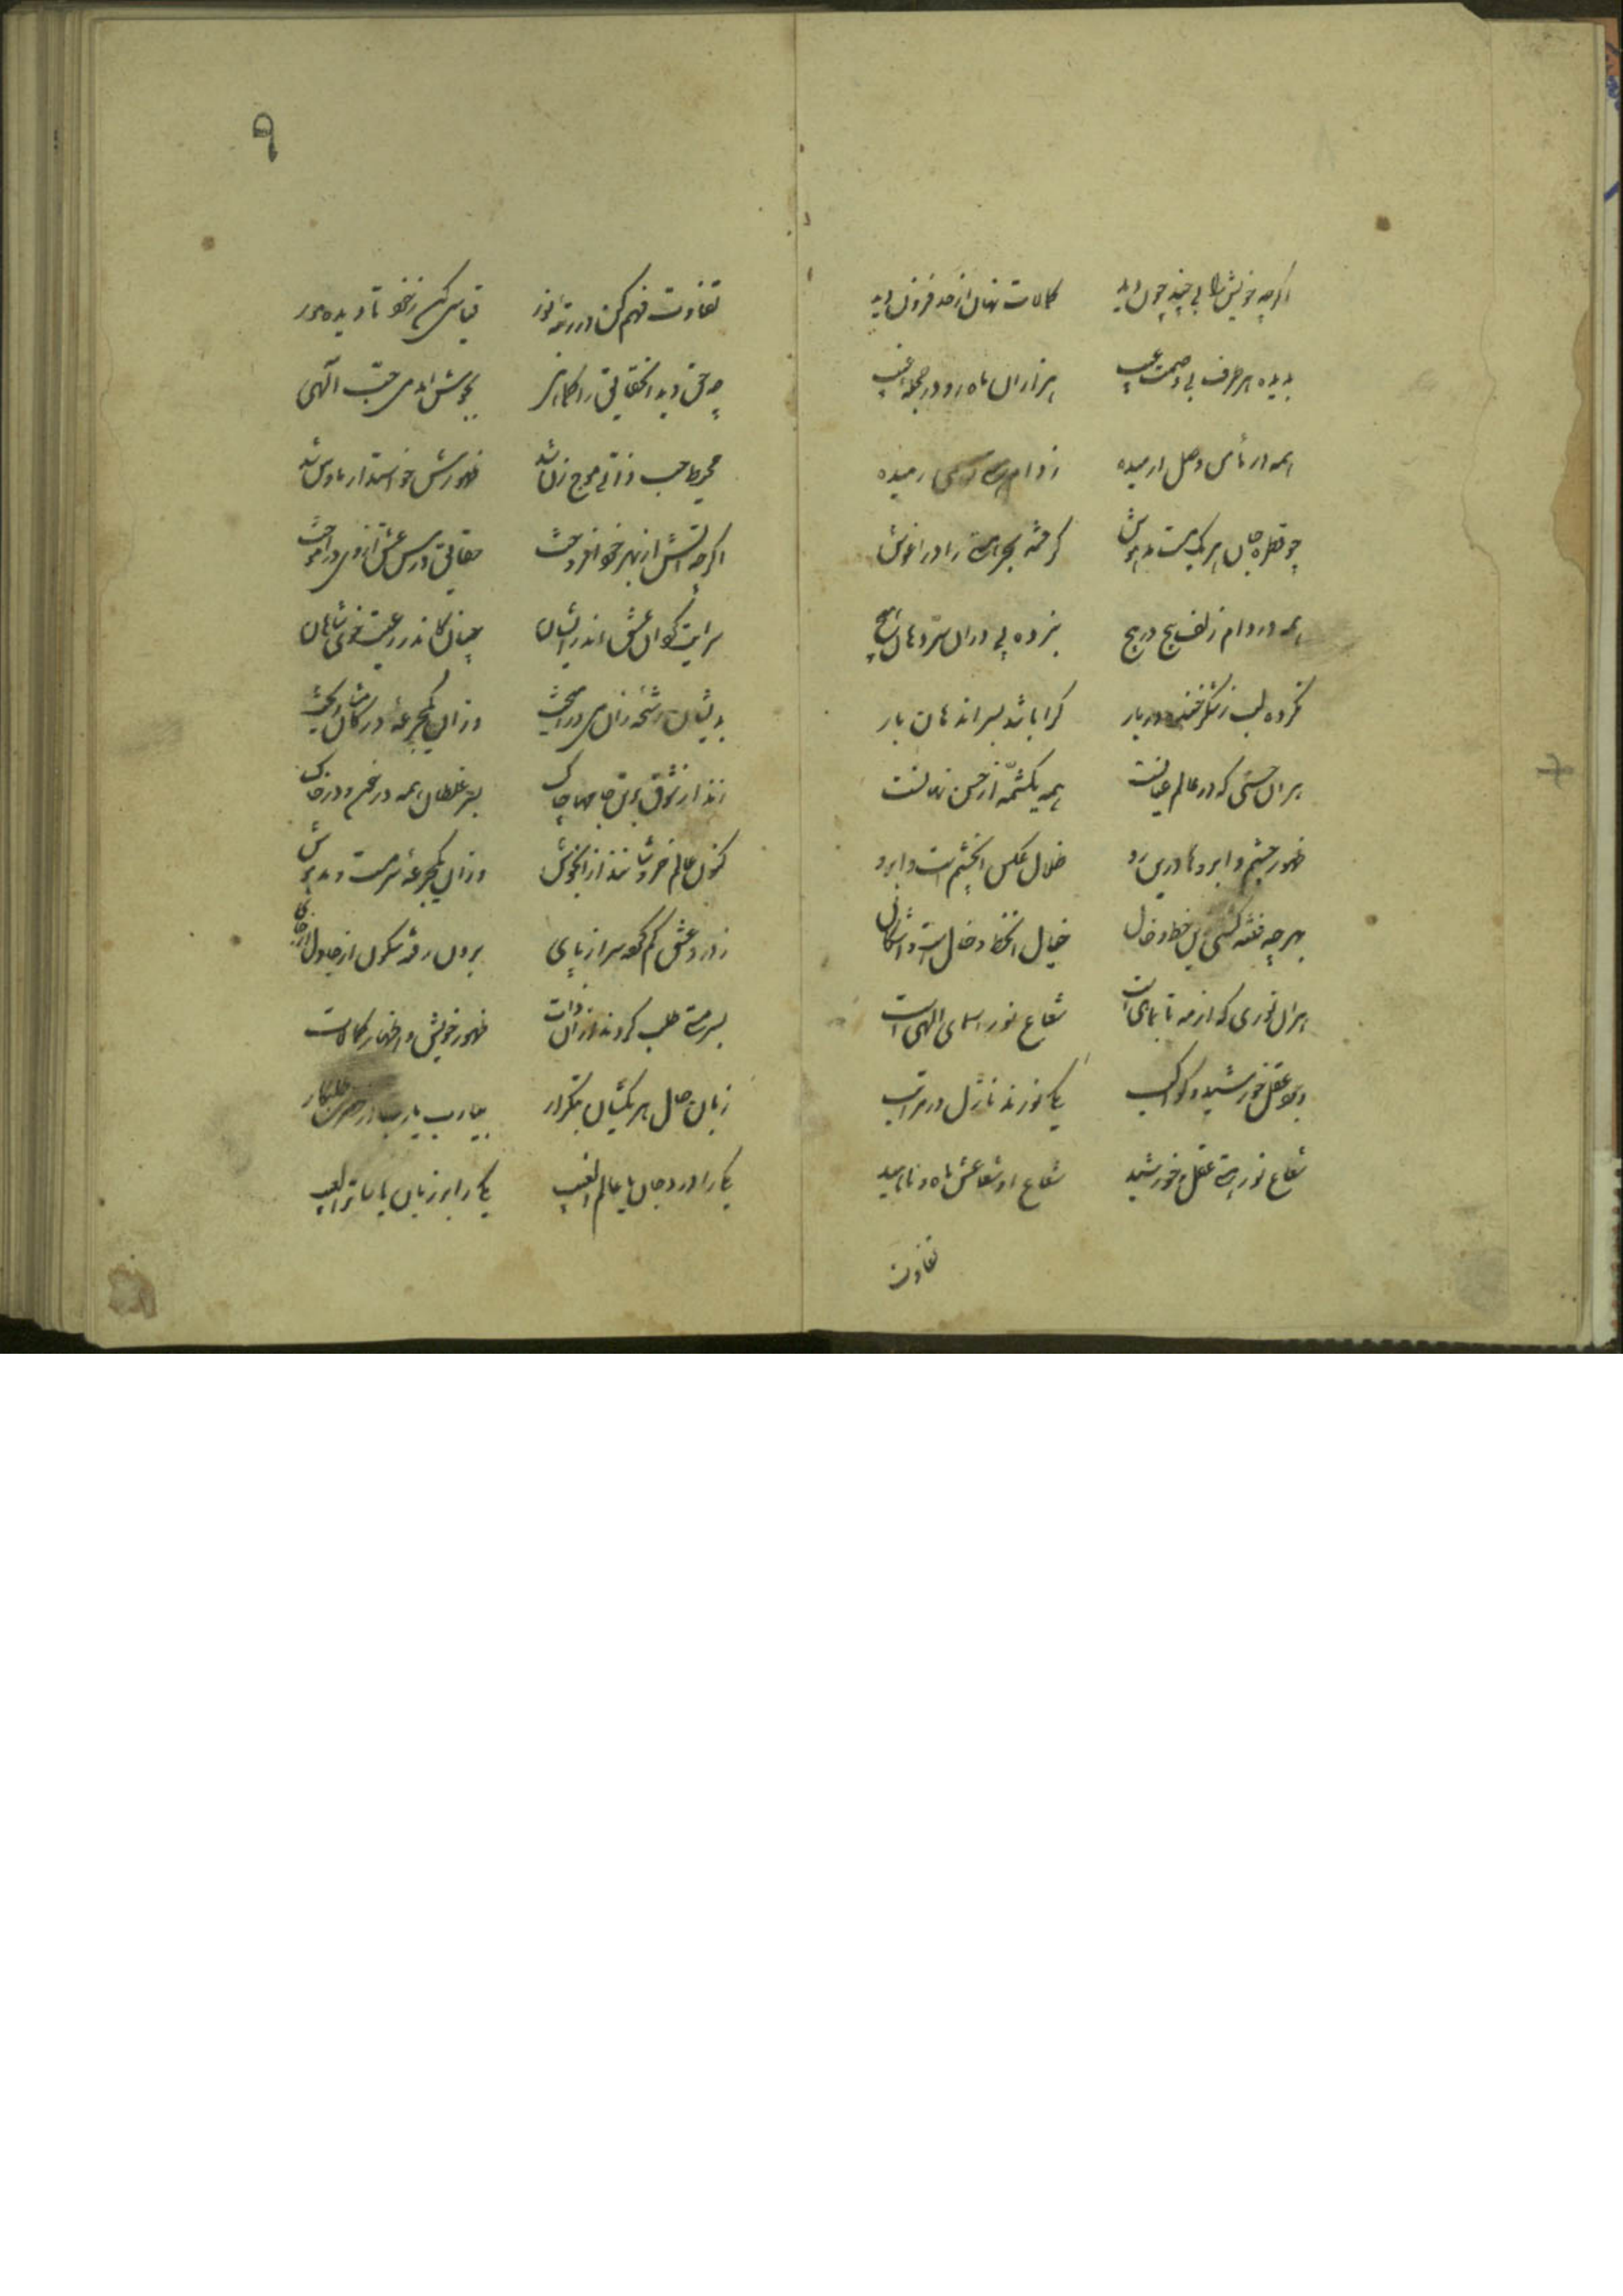 اگرچه خویش را بی چند و چون دید کمالات نهان از حد فزون دید
بدیده هر طرف بی وصمت عیب هزاران ماه رو در حجله غیب
همه از وصل ارمیده ز دام رمیده
چو قطره جان هر یک مست مدهوش گرفته بحر را در اغوش
همه در دام زلف پیچ در پیچ نبرده پی در ان سر دهان هیچ
نکرده لب ز شکر خنده دربار کرا باشد بسر اندهان بار
هر ان حسنی که در عالم عیانست همه یکشمه از حسن نهانست
ظهور چشم و ابروها درین رو ظلال عکس انچشم است و ابرو
بهر چه فتنه کشتی این خط و خال خیال انخط و خال است و اشکال
هر ان نوری که از مه تا بماهی است شعاع نور اسمای الهی است
عقل خورشید و کواکب یکی نورند نازل در مراتب
شعاع نور عقل و خورشید شعاع او شعاعش ماه و ناهید
تفاوت
۹
تفاوت فهم کن در رتبه نور قیاسی کن ز خود تا دیده مور
چه حق دید انحقایق را کماهی بجوش امد می حب الهی
محیط حب ذاتی موج زن شد ظهورش خواستدار ما و من شد
اگرچه اتش از بهر خود افروخت حقایق درس عشق از وی در اموخت
سرایت کرد ان عشق اندر ایشان چنان کاندر رعیت خوی شاهان
بدیشان رشحه زان می در امیخت وزان یکجرعه در کامشان ریخت
زدند از شوق جامها چاک غلطان همه در خم و در خاک
کنون عالم خروشانند از انجوش وزان یکجرعه سرمست و مدهوش
ز درد عشق گم کرده سر از پای برون رفته سکون از جا و دل از جای
بسرمستی طلب کردند از ان ذات ظهور خویش و اظهار کمالات
زبان حال هر یکشان بتکرار بیارب یارب از طلبکار
یکی را ورد جان یا عالم الغیب یکی را بر زبان یا ساتر العیب